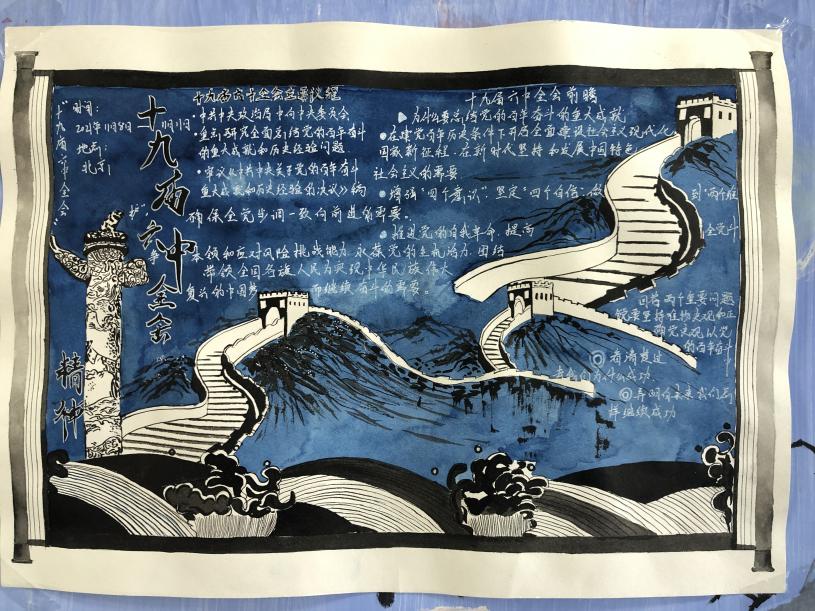 "十九届六中全会"
时间:
2021年11月8日—11月11日
地点:
北京
十九届六中全会
精神
十九届六中全会主要议程
•中共中央政治局向中央委员会
•重点研究全面总结党的百年奋斗
的重大成就和历史经验问题
•审议《中共中央关于党的百年奋斗
重大成就和历史经验的决议》
十九届六中全会前瞻
为什么要总结党的百年奋斗的重大成就
•在建党百年历史条件下开启全面建设社会主义现代化
国家新征程、在新时代坚持和发展中国特色
社会主义的需要
•增强"四个意识"坚定"四个自信",做
到"两个维
护",
确保全党步调一致向前进的需要。
•推进党的自我革命、提高
全党斗
争
本领和应对风险挑战能力、永葆党的生机活力、团结
带领全国各族人民为实现中华民族伟大
复兴的中国梦而继续奋斗的需要。
回答两个重要问题
就要坚持唯物史观和正
确党史观,从党
的百年奋斗
◎看清楚过
去我们为什么成功、
◎弄明白未来我们怎
样继续成功